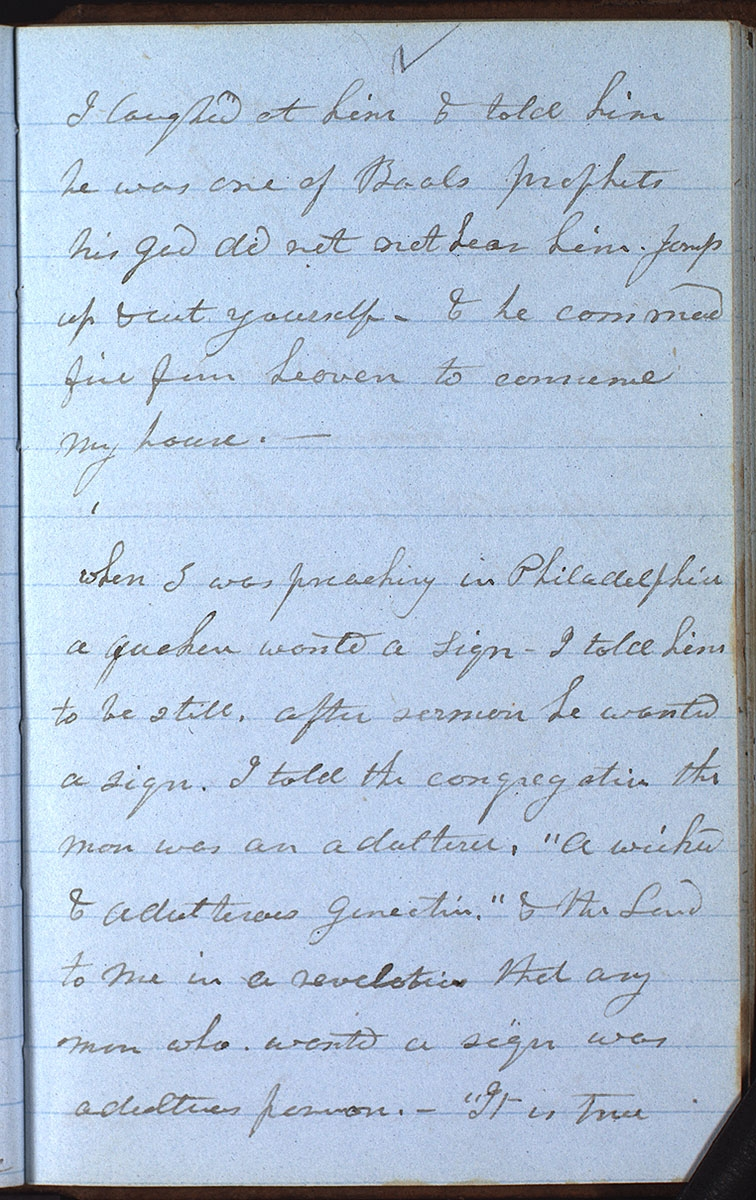 I laughed at him & told him
he was one of Baals prophets
his god did not not hear him. Jump
up & cut yourself - & he commad
fire from heaven to consume
my house. —
when I was preaching in Philadelphia
a quaker wantd a sign - I told him
to be still. after sermon he wantd
a sign. I told the congregation the
man was an adulterer. "A wicked
& adulterous generatin." & the Lord
to me in a revelation that any
man who. wantd a sign was
adulterous person. - "It is true